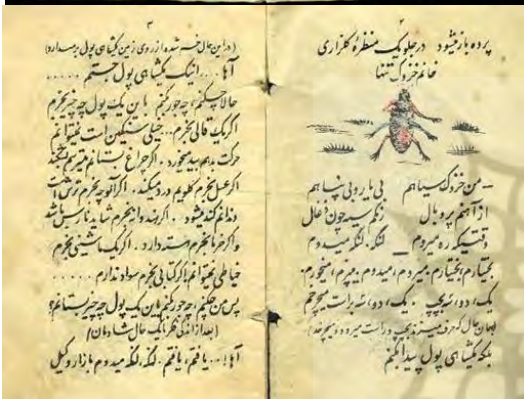 ۲
پرده باز میشود در جلو یک منظرهٔ گلزاری
خانم خزوک تنها
ـ من خزوک سیاهم بی یار و بی پناهم
از آهنم پر و بال رنگم سیه چون ذغال
وقتیکه ره میروم ـ لنگه لنگه میدوم
بختیارم، بختیارم. میروم، میدوم، میپرم، میخورم.
یک، دو، بچپ. یک، دو، براست میچرخم
بلکه یکشاهی پول پیدا بکنم
۳
(در این حال خم شده از روی زمین یکشاهی پول برمیدارد)
آها .... اینک یکشاهی پول جستم .....
حالا چکنم، چه جور کنم با این یک پول چه چیز بخرم
اگر یک قالی بخرم.. خیلی سنگین است نمیتوانم
حرکت بدهم . اگر چراغ بستانم میترسم بشکند
اگر عسل بخرم گلویم درد میکند. اگر آلوچه بخرم ترش است
دندانم کند میشود. اگر هندوانه بخرم شاید نارس باشد
و اگر خرما بخرم هسته دارد. اگر یک ماشینی بخرم
خیاطی نمیتوانم اگر کتابی بخرم سواد ندارم .....
پس من چکنم، چه جور کنم با این یک پول چه چیز بستانم؟
(بعد از اندکی فکر با یک حال شادمان)
آها!... یافتم، یافتم. لنگه، لنگه میدوم بازار وکیل